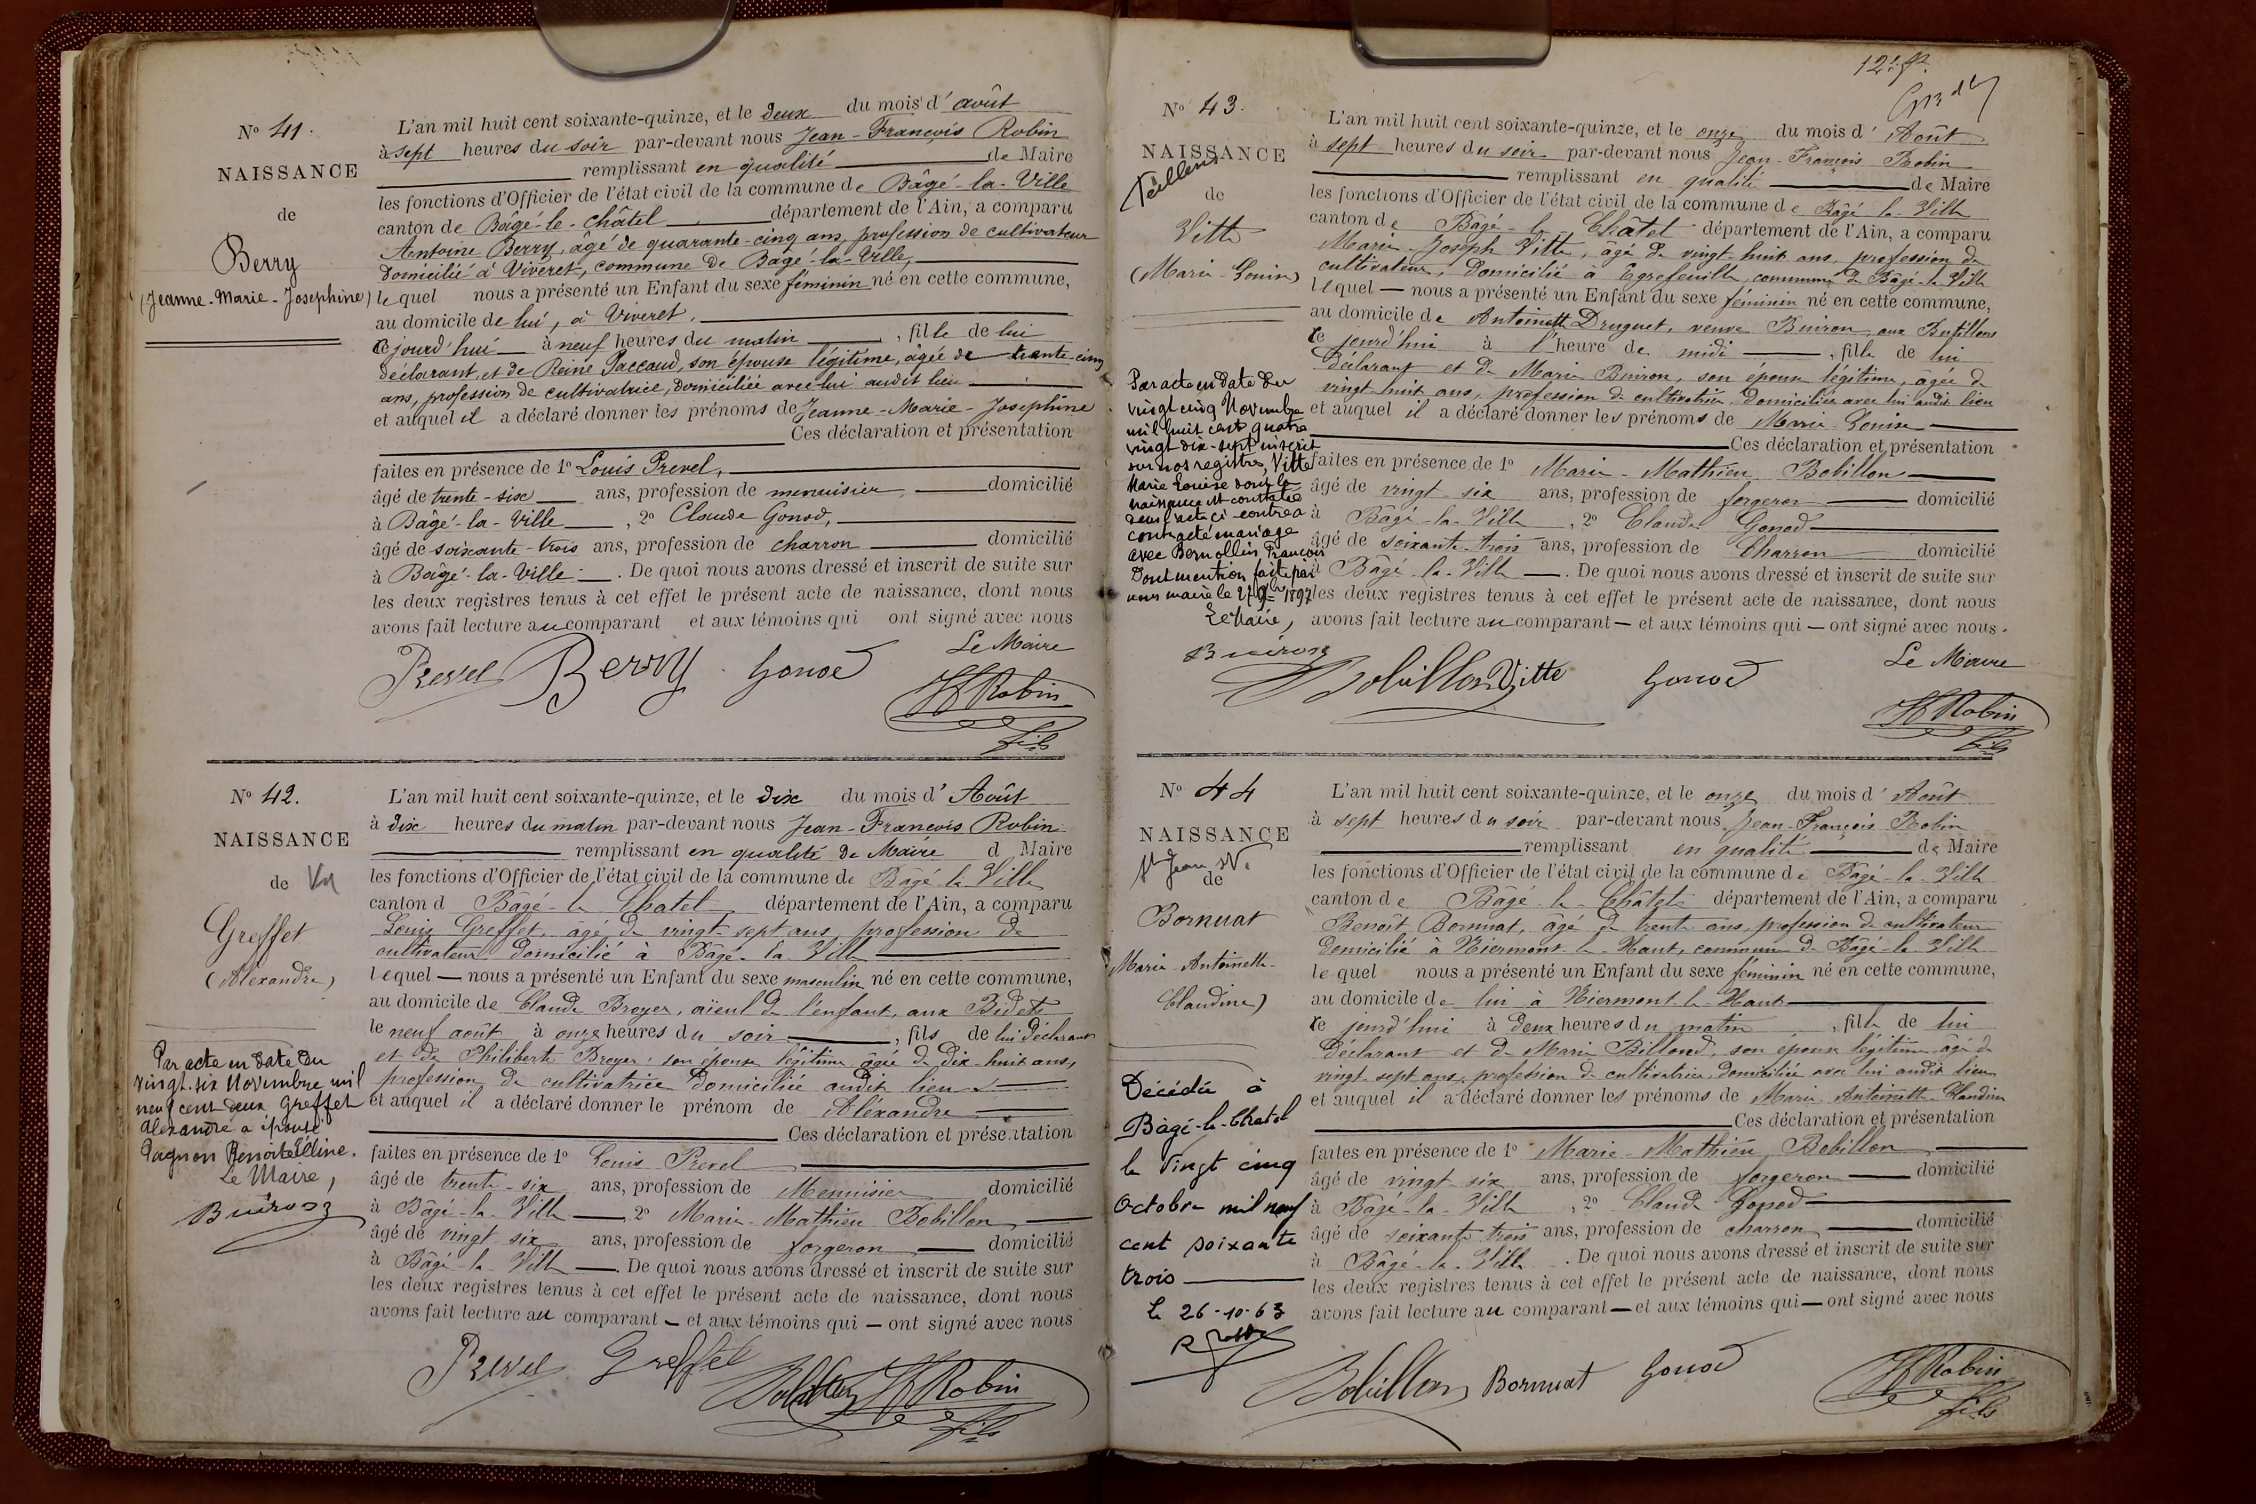 No 41.
NAISSANCE
de
Berry
(Jeanne-Marie-Josephine)
L'an mil huit cent soixante-quinze, et le deux du mois d'août
à sept heures du soir par-devant nous Jean-François Robin
remplissant en qualité de Maire
les fonctions d'Officier de l'état civil de la commune de Bâgé-la-Ville
canton de Bâgé-le-Châtel département de l'Ain, a comparu
Antoine Berry, âgé de quarante-cinq ans, profession de cultivateur
domicilié à Viveret, commune de Bâgé-la-Ville,
lequel nous a présenté un Enfant du sexe féminin né en cette commune,
au domicile de lui, à Viveret,
ce jourd'hui à neuf heures du matin, fille de lui
déclarant, et de Reine Paccaud, son épouse légitime, âgée de trente-cinq
ans, profession de cultivatrice, domiciliée avec lui audit lieu
et auquel il a déclaré donner les prénoms de Jeanne-Marie-Josephine
Ces déclaration et présentation
faites en présence de 1o Louis Prevel,
âgé de trente-six ans, profession de menuisier, domicilié
à Bâgé-la-Ville, 2o Claude Gonod,
âgé de soixante-trois ans, profession de charron domicilié
à Bâgé-la-Ville. De quoi nous avons dressé et inscrit de suite sur
les deux registres tenus à cet effet le présent acte de naissance, dont nous
avons fait lecture au comparant et aux témoins qui ont signé avec nous
Le Maire
Prevel Berry Gonod
Robin
fils
No 42.
NAISSANCE
de
Greffet
(Alexandre)
Par acte en date du
vingt-six Novembre mil
neuf cent deux Greffet
Alexandre a épousé
Pagnon Benoite Céline.
Le Maire,
Buiron
L'an mil huit cent soixante-quinze, et le dix du mois d'Août
à dix heures du matin par-devant nous Jean-François Robin
remplissant en qualité de Maire d Maire
les fonctions d'Officier de l'état civil de la commune de Bâgé-la-Ville
canton d Bâgé-le-Chatel département de l'Ain, a comparu
Louis Greffet, âgé de vingt-sept ans, profession de
cultivateur domicilié à Bâgé-la-Ville
lequel nous a présenté un Enfant du sexe masculin né en cette commune,
au domicile de Claude Broyer, aïeul de l'enfant, aux Bidets
le neuf août à onze heures du soir, fils de lui déclarant
et de Philiberte Broyer, son épouse légitime âgée de dix-huit ans,
profession de cultivatrice domiciliée audit lieu
et auquel il a déclaré donner le prénom de Aléxandre
Ces déclaration et présentation
faites en présence de 1o Louis Prevel
âgé de trente-six ans, profession de Menuisier domicilié
à Bâgé-la-Ville, 2o Marie-Mathieu Bobillon
âgé de vingt six ans, profession de forgeron domicilié
à Bâgé-la-Ville. De quoi nous avons dressé et inscrit de suite sur
les deux registres tenus à cet effet le présent acte de naissance, dont nous
avons fait lecture au comparant et aux témoins qui ont signé avec nous
Prevel Greffet Bobillon Robin
fils
No 43.
NAISSANCE
de
Vitte
(Marie-Louise)
Par acte en date du
vingt cinq Novembre
mil huit cent quatre
vingt-dix-sept inscrit
sur nos registres, Vitte
Marie Louise dont la
naissance est constatée
dans l'acte ci-contre a
contracté mariage
avec Bernollin François
Dont mention faite par
nous maire le 27 9bre 1897
Le Maire,
Buiron
L'an mil huit cent soixante-quinze, et le onze du mois d'Août
à sept heures du soir par-devant nous Jean-François Robin
remplissant en qualité de Maire
les fonctions d'Officier de l'état civil de la commune de Bâgé-la-Ville
canton de Bâgé-le-Châtel département de l'Ain, a comparu
Marie-Joseph Vitte, âgé de vingt-huit ans, profession de
cultivateur, domicilié à Egrefeuille, commune de Bâgé-la-Ville
lequel nous a présenté un Enfant du sexe féminin né en cette commune,
au domicile de Antoinette Druguet, veuve Buiron, aux
ce jourd'hui à l'heure de midi, fille de lui
déclarant et de Marie Buiron, son épouse légitime, âgée de
vingt-huit ans, profession de cultivatrice, domiciliée avec lui audit lieu
et auquel il a déclaré donner les prénoms de Marie-Louise
Ces déclaration et présentation
faites en présence de 1o Marie-Mathieu Bobillon
âgé de vingt-six ans, profession de forgeron domicilié
à Bâgé-la-Ville, 2o Claude Gonod
âgé de soixante-trois ans, profession de Charron domicilié
à Bâgé-la-Ville. De quoi nous avons dressé et inscrit de suite sur
les deux registres tenus à cet effet le présent acte de naissance, dont nous
avons fait lecture au comparant et aux témoins qui ont signé avec nous.
Le Maire
Bobillon Vitte Gonod
Robin
fils
No 44
NAISSANCE
de
Bornuat
Marie-Antoinette-
Claudine)
Décédée à
Bâgé-le-Chatel
le vingt cinq
Octobre mil neuf
cent soixante
trois
Le 26-10-63
L'an mil huit cent soixante-quinze, et le onze du mois d'Août
à sept heures du soir par-devant nous Jean-François Robin
remplissant en qualité de Maire
les fonctions d'Officier de l'état civil de la commune de Bâgé-la-Ville
canton de Bâgé-le-Châtel département de l'Ain, a comparu
Benoît Bornuat, âgé de trente ans, profession de cultivateur
domicilié à Niermont-le-Haut, commune de Bâgé-la-Ville
lequel nous a présenté un Enfant du sexe féminin né en cette commune,
au domicile de lui à Niermont-le-Haut
ce jourd'hui à deux heures du matin, fille de lui
déclarant et de Marie Billoud, son épouse légitime âgée de
vingt-sept ans, profession de cultivatrice, domiciliée avec lui audit lieu
et auquel il a déclaré donner les prénoms de Marie-Antoinette-Claudine
Ces déclaration et présentation
faites en présence de 1o Marie-Mathieu Bobillon
âgé de vingt-six ans, profession de forgeron domicilié
à Bâgé-la-Ville, 2o Claude Gonod
âgé de soixante-trois ans, profession de charron domicilié
à Bâgé-la-Ville. De quoi nous avons dressé et inscrit de suite sur
les deux registres tenus à cet effet le présent acte de naissance, dont nous
avons fait lecture au comparant et aux témoins qui ont signé avec nous
Bobillon Bornuat Gonod Robin
fils